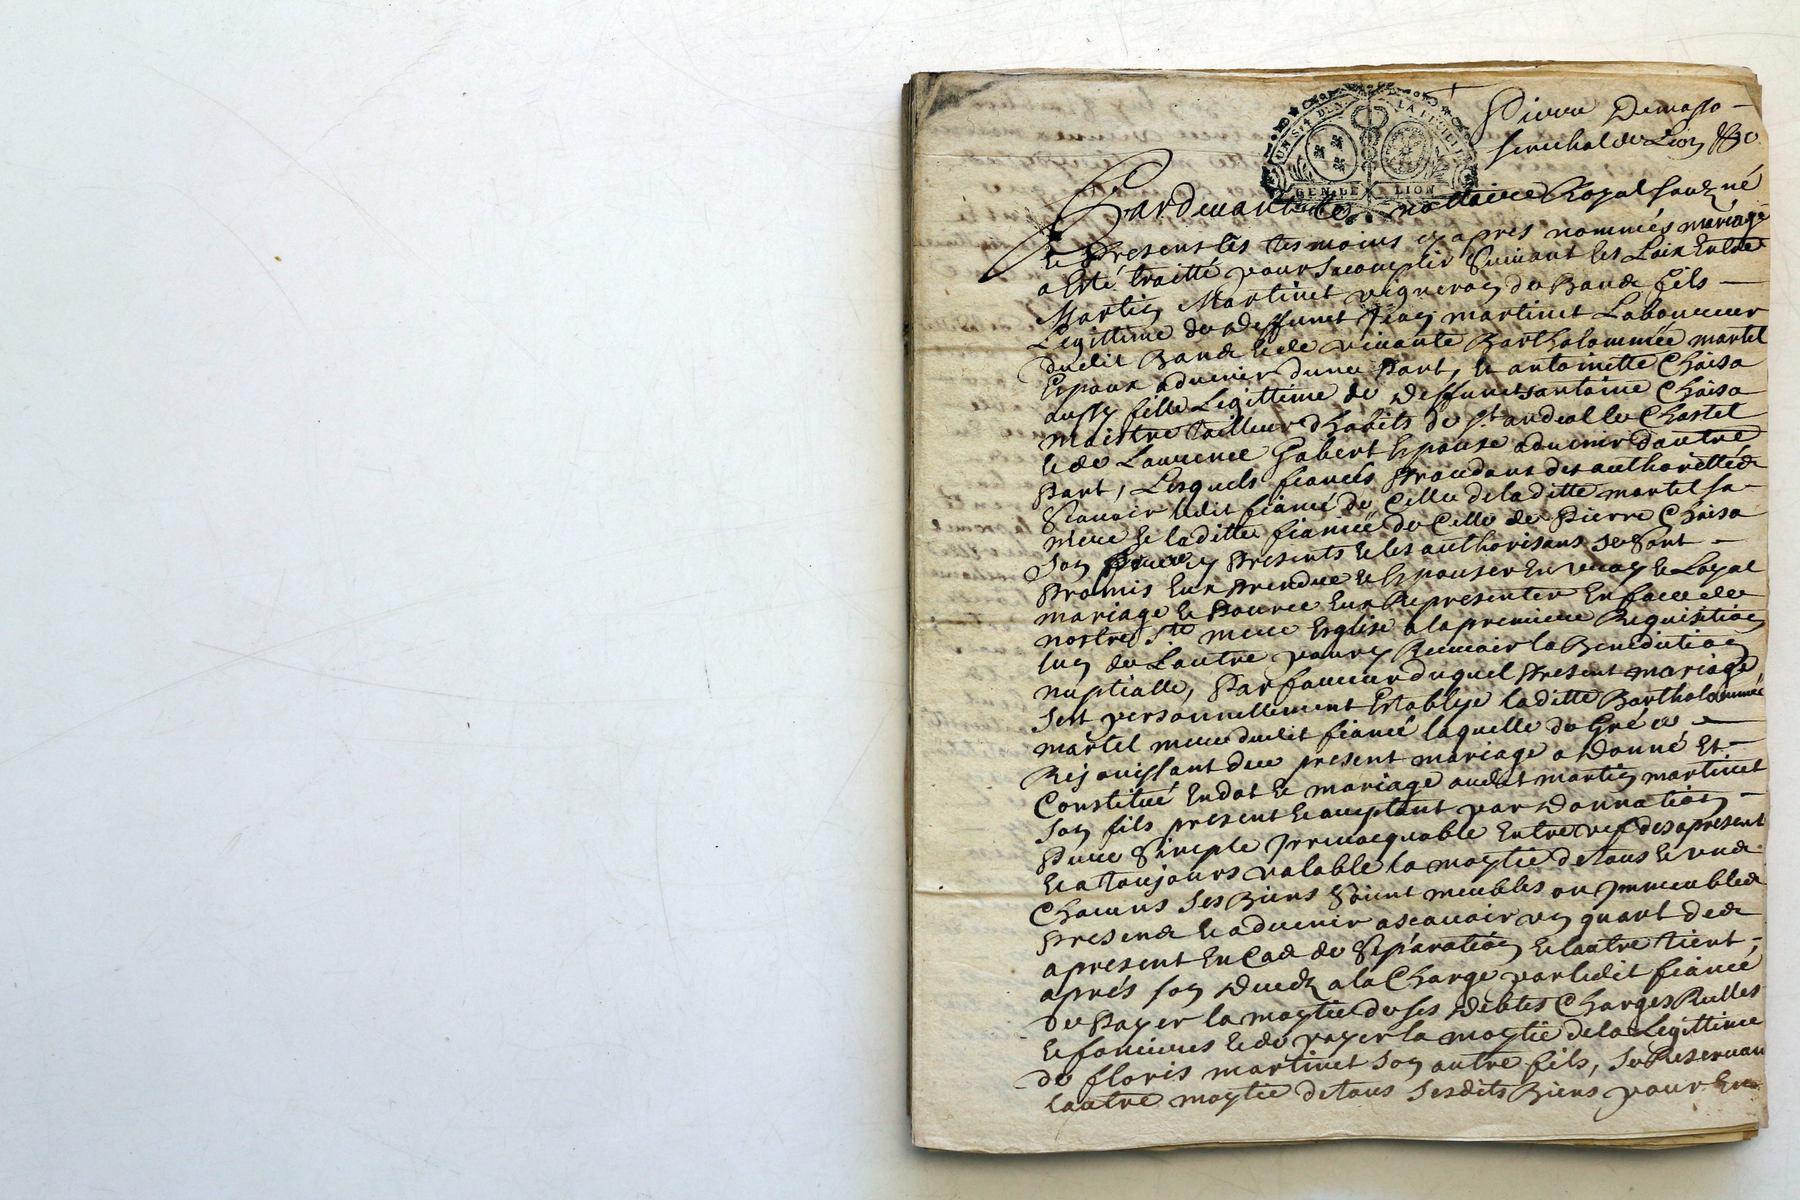 UN S. 4 DEN. LA FEUILLE
GEN. DE LION
Pierre Demasso
senechal de Lion &c
Pardevant le nottaire Royal soubzné
Et Presens les tesmoins cy apres nommés mariage
a Esté traitté pour sacomplir Suivant les Loix Entre
Martin Martinet vigneron de Bande fils
Legittime de deffunct Jean martinet Laboureur
dudit Bande et de vivante Bartholommée martel
Epoux advenir dune Part, Et antoinette Chaisa
aussy fille Legittime de deffunct antoine Chaisa
maistre tailleur d'habits de st andeol le Chastel
et de Laurence Gabert Epouse advenir dautre
Part, Lesquels fiancés Procedans des authorittés
Scavoir ledit fiancé de Celle de laditte martel sa
mere Et laditte fiancée de Celle de Pierre Chaisa
son frere cy Presents Et les authorisans se sont
Promis Eux Prendre Et Epouser En vray Et Loyal
mariage Et Pource Eux Representer En face de
nostre ste mere Eglise a la premiere Requisition
lun de Lautre pour y Recevoir la Benediction
nuptialle, Par faveur duquel Present mariage
sest personnellement Establye laditte Bartholommée
martel mere dudit fiancé laquelle de Gré et
Rejouissant du present mariage a Donné Et
Constitué En dot Et mariage audit martin martinet
son fils present Et acceptant par Donnation
Pure Simple Irrevocquable Entre vif des apresent
Et a toujours valable la moytié de tous Et uns
Chacuns ses Biens Soient meubles ou Immeubles
Presens Et advenir ascavoir un quart des
apresent En Cas de Separation Et lautre tient
aprés son Decedz a la Charge par ledit fiancé
de Payer la moytié de ses Debtes Charges Reelles
Et foncieres Et de payer la moytié de la Legittime
de floris martinet son autre fils, se Reservant
lautre moytié de tous sesdits Biens pour En